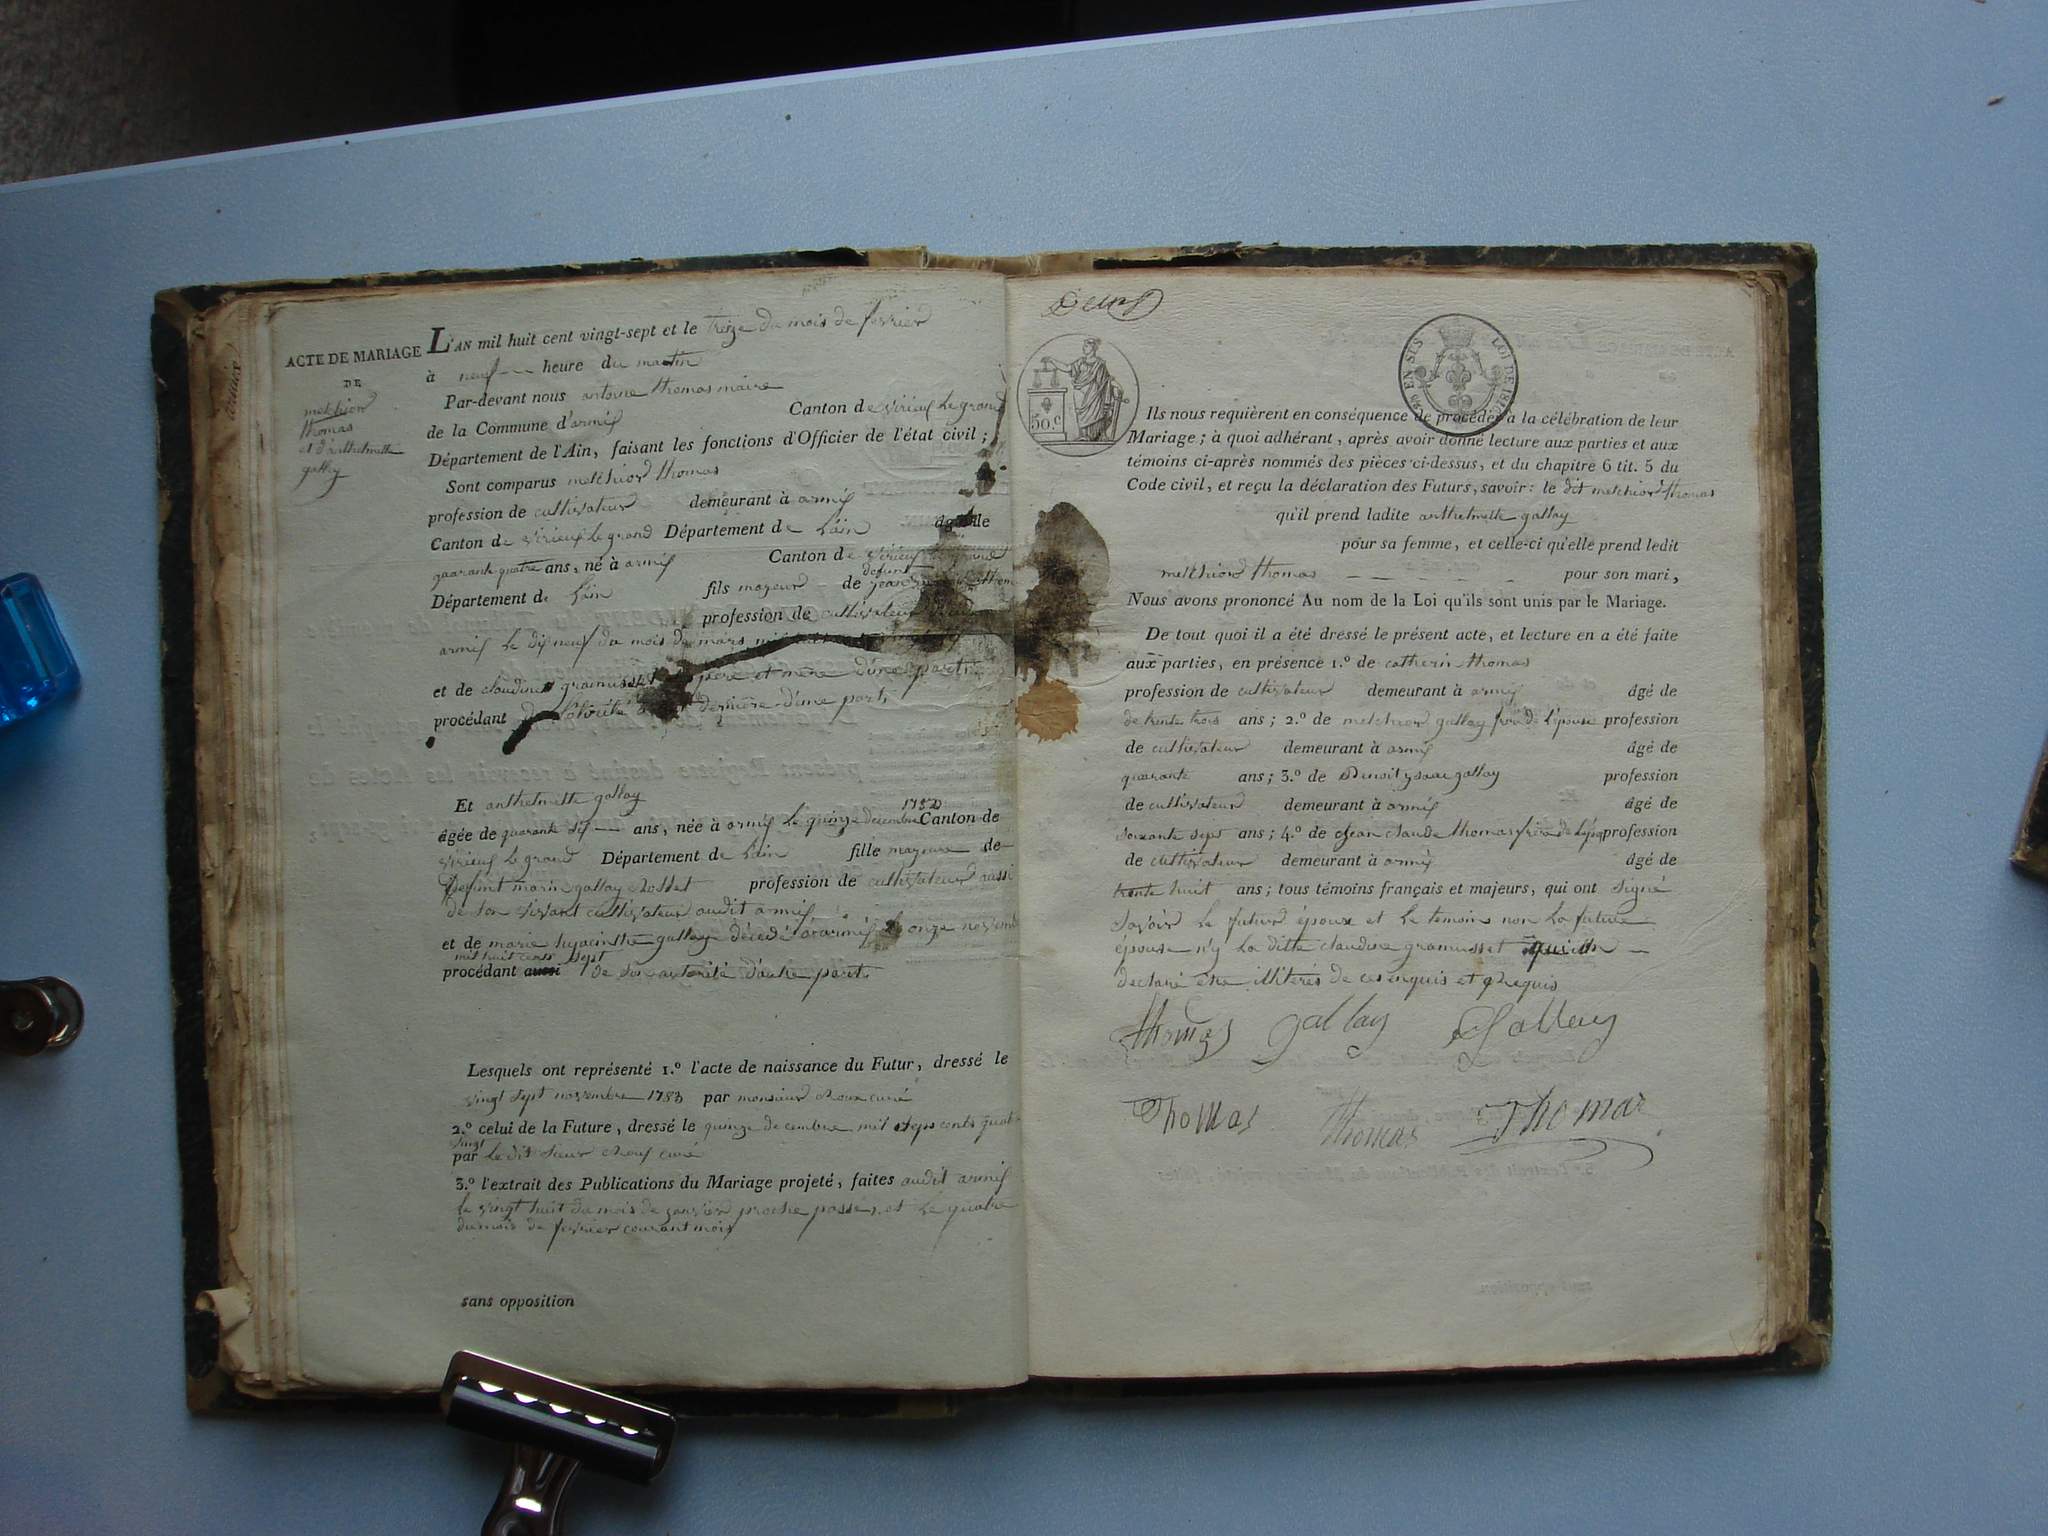 ACTE DE MARIAGE
DE
melchior
thomas
et d'anthelmette
gallay
L'AN mil huit cent vingt-sept et le treize du mois de fevrier
à neuf heure du matin
Par-devant nous antoine thomas maire
de la Commune d'armix Canton de virieux le grand
Département de l'Ain, faisant les fonctions d'Officier de l'état civil ;
Sont comparus melchior thomas
profession de cultivateur demeurant à armix
Canton de virieux le grand Département de Lain âgé de
quarante quatre ans, né à armix Canton de virieux le grand
Département de Lain fils majeur de defunt
profession de cultivateur
armix le dix neuf du mois de mars mil
et de claudine gramusset père et mère d'une part
procédant de dernière d'une part,
Et anthelmette gallay
âgée de quarante six ans, née à armix le quinze decembre Canton de
virieux le grand Département de Lain fille majeure de
Defunt marin gallay Rosset profession de cultivateur aussi
de son vivant cultivateur audit armix
et de marie hyacinthe gallay décédé a armix le onze novemb
mil huit cents sept
procédant aussi de son autorité d'autre part
Lesquels ont représenté 1.º l'acte de naissance du Futur, dressé le
vingt sept novembre 1783 par monsieur Roux curé
2.º celui de la Future, dressé le quinze decembre mil sept cents quat
vingt
par le dit sieur Roux curé
3.º l'extrait des Publications du Mariage projeté, faites audit armix
le vingt huit du mois de janvier proche passé, et le quatre
du mois de fevrier courant mois
sans opposition
Deux
50.c
LOI DE
Ils nous requièrent en conséquence de procéder à la célébration de leur
Mariage ; à quoi adhérant, après avoir donné lecture aux parties et aux
témoins ci-après nommés des pièces ci-dessus, et du chapitre 6 tit. 5 du
Code civil, et reçu la déclaration des Futurs, savoir : le dit melchior thomas
qu'il prend ladite anthelmette gallay
pour sa femme, et celle-ci qu'elle prend ledit
melchior thomas pour son mari,
Nous avons prononcé Au nom de la Loi qu'ils sont unis par le Mariage.
De tout quoi il a été dressé le présent acte, et lecture en a été faite
aux parties, en présence 1.º de catherin thomas
profession de cultivateur demeurant à armix âgé de
de trente trois ans ; 2.º de melchior gallay frère de l'épouse profession
de cultivateur demeurant à armix âgé de
quarante ans ; 3.º de Benoit ysaac gallay profession
de cultivateur demeurant à armix âgé de
soixante sept ans ; 4.º de Jean claude thomas frère de profession
de cultivateur demeurant à armix âgé de
trente huit ans ; tous témoins français et majeurs, qui ont signé
savoir le futur époux et le temoins non la future
épouse n'y la ditte claudine gramusset
declaré etre illitérés de ces enquis et Requis
thomas gallay Gallay
Thomas thomas Thomas